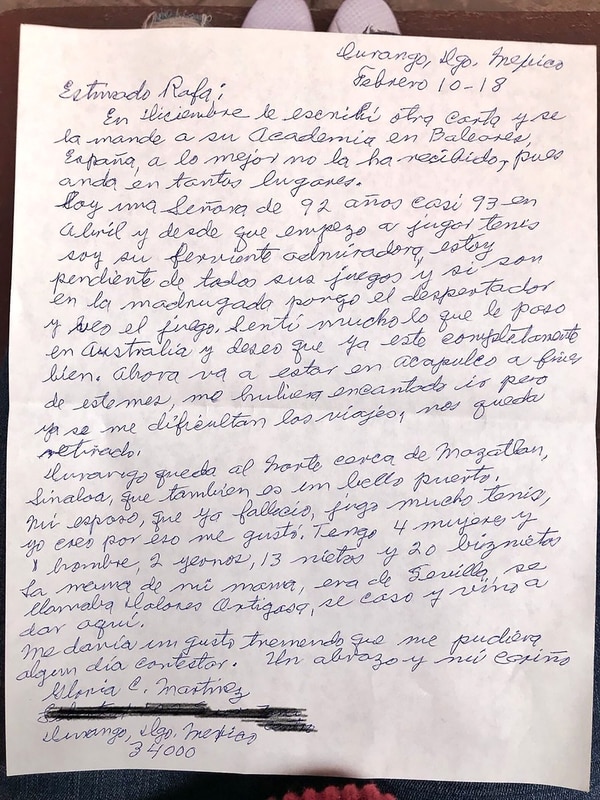 Durango, Dgo. Mexico
Febrero 10-18
Estimado Rafa;
En Diciembre le escribí otra carta y se
la mande a su Academia en Baleares,
España, a lo mejor no la ha recibido, pues
anda en tantos lugares.
Soy una Señora de 92 años casi 93 en
Abril y desde que empezo a jugar tenis
soy su ferviente admiradora, estoy
pendiente de todos sus juegos y si son
en la madrugada pongo el despertador
y veo el juego. Sentí mucho lo que le paso
en Australia y deseo que ya este completamente
bien. Ahora va a estar en Acapulco a fines
de estemes, me hubiera encantado ir pero
ya se me dificultan los viajes, nos queda
retirado.
Durango queda al Norte cerca de Mazatlan,
Sinaloa, que tambien es un bello puerto.
Mi esposo, que ya fallecio, jugo mucho tenis,
yo creo por eso me gustó. Tengo 4 mujeres y
1 hombre, 2 yernos, 13 nietos y 20 biznietos
La mama de mi mama, era de Sevilla, se
llamaba Dolores Ortigosa, se caso y vino a
dar aquí.
Me daría un gusto tremendo que me pudiera
algun día contestar. Un abrazo y mi cariño
Gloria C. Martinez
Durango, Dgo. Mexico
34000